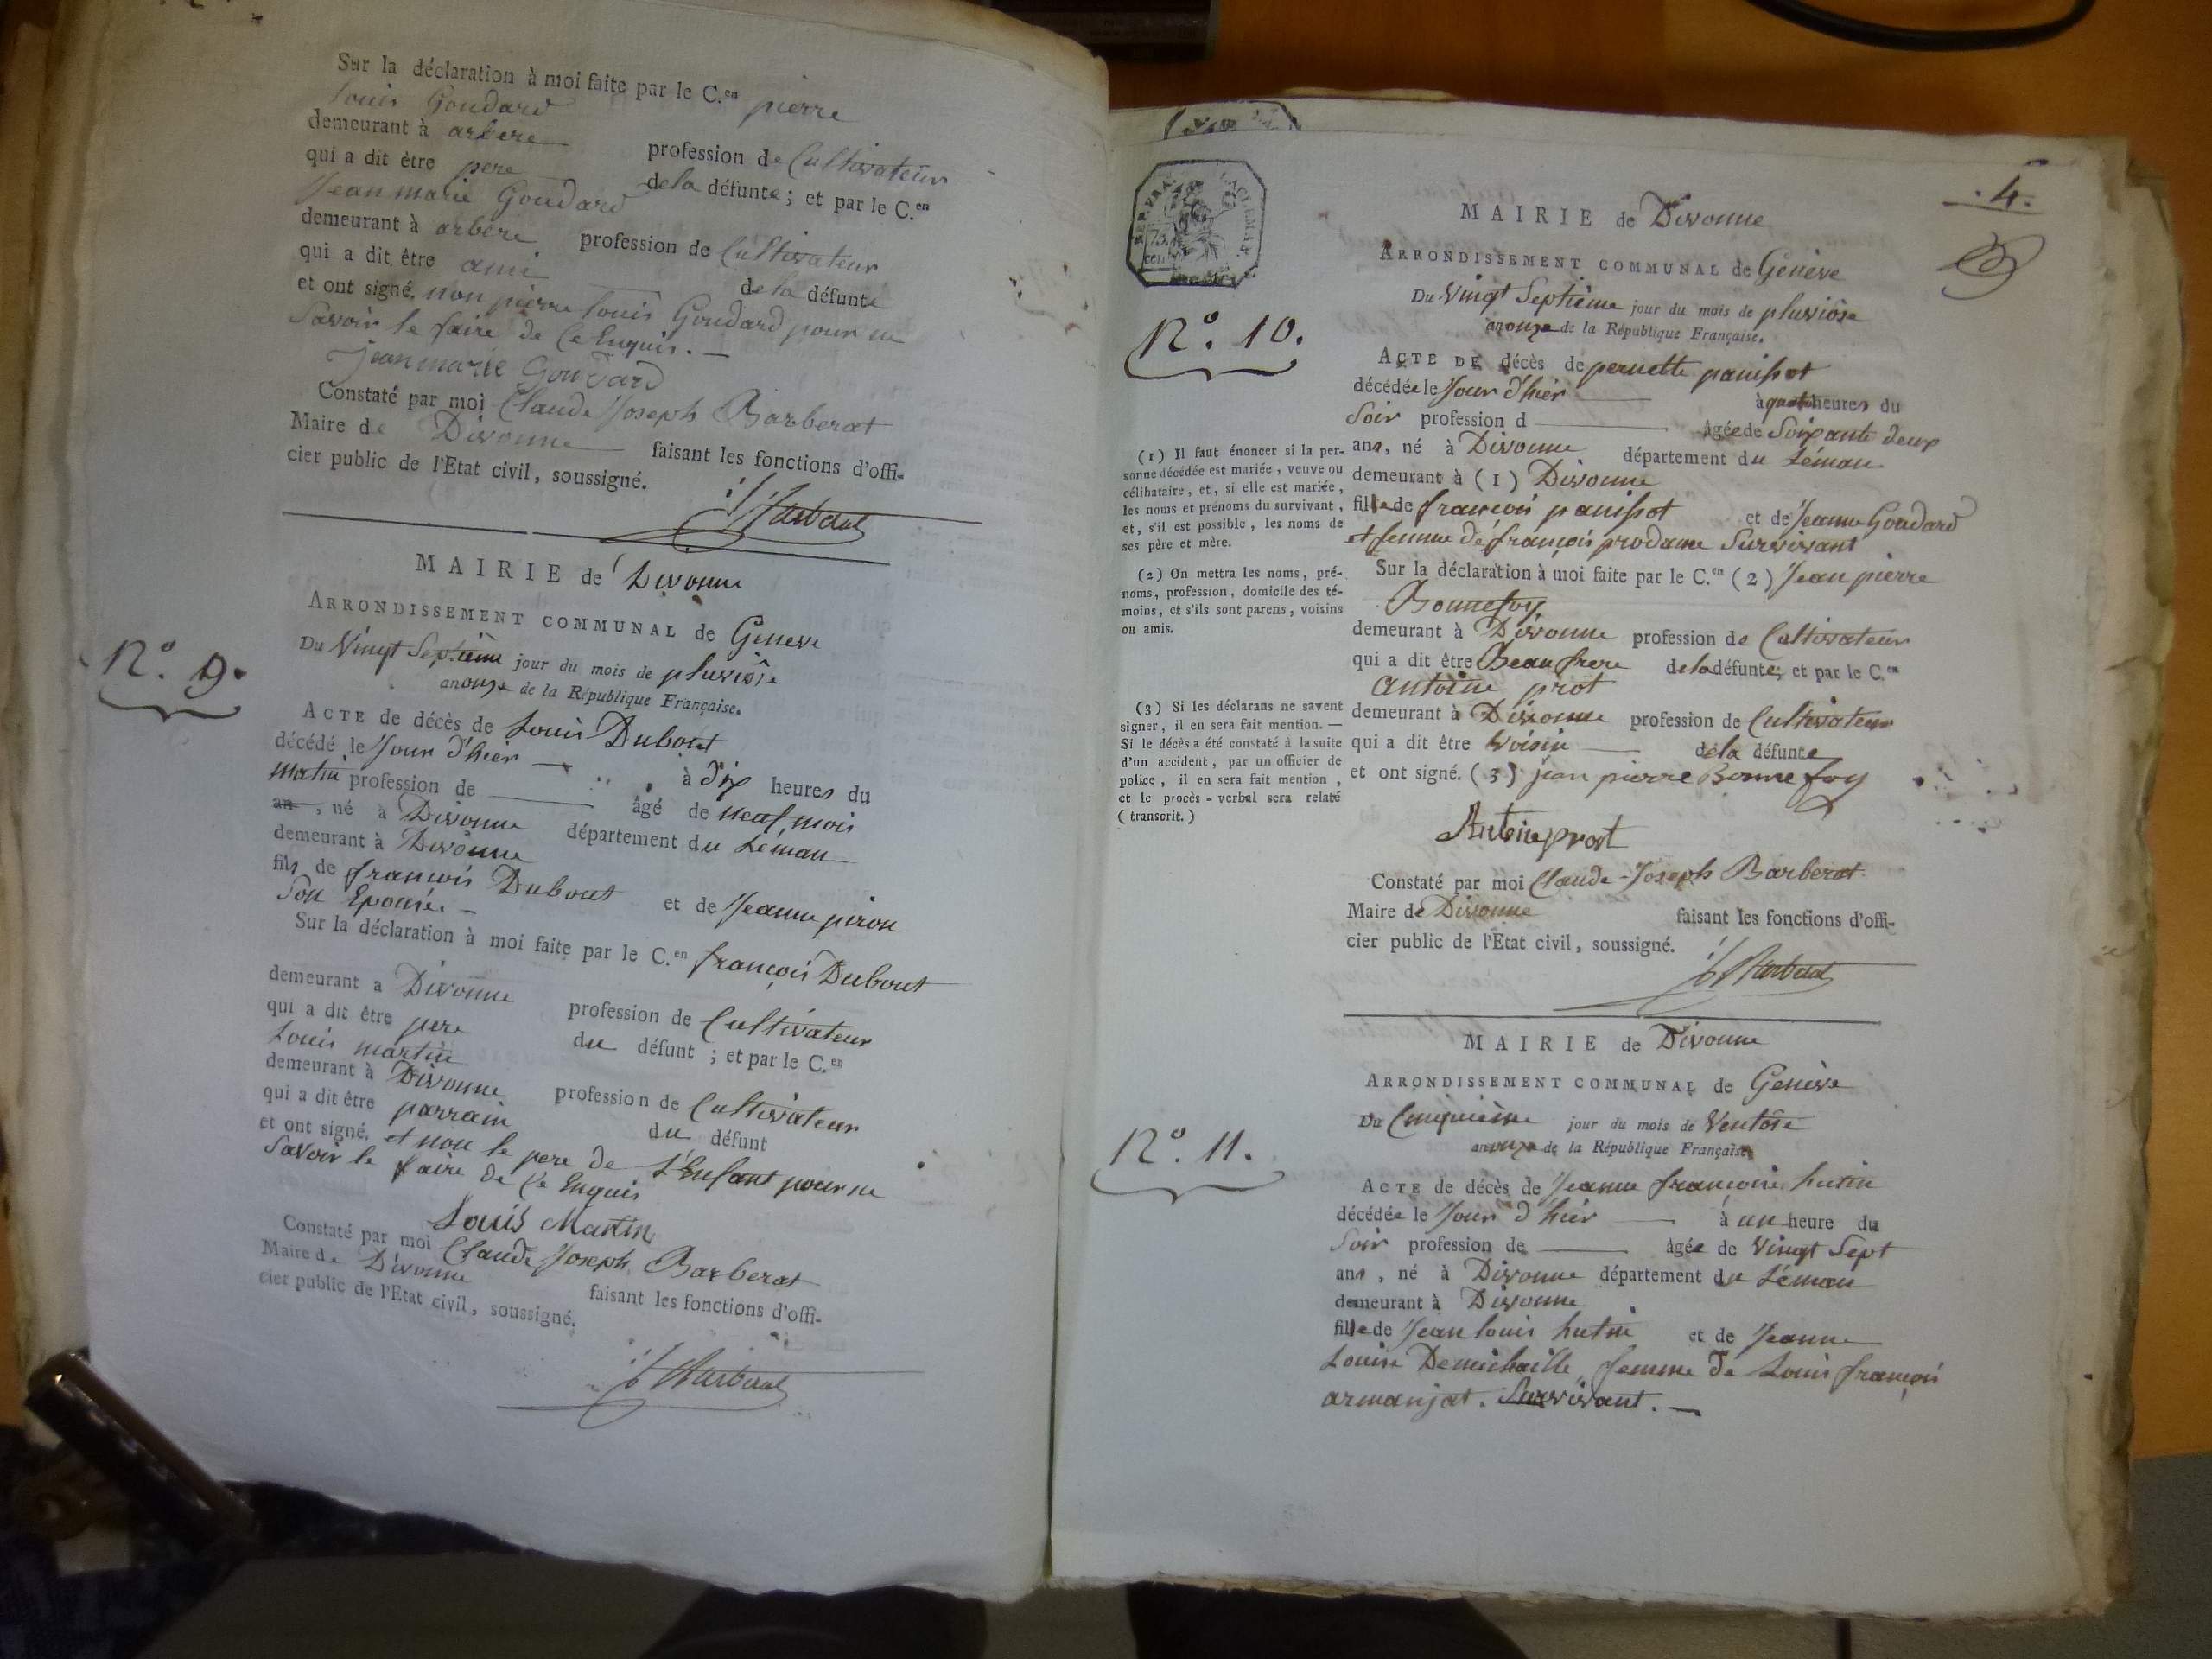 Sur la déclaration à moi faite par le C.en pierre
Louis Goudard
demeurant à arbere profession de Cultivateur
qui a dit être pere de la défunte ; et par le C.en
Jean marie Goudard
demeurant à arbere profession de Cultivateur
qui a dit être ami de la défunte
et ont signé, non pierre Louis Goudard pour ne
Savoir le faire de Ce Enquis. —
jean marie Goudard
Constaté par moi Claude Joseph Barberat
Maire de Divonne faisant les fonctions d'offi-
cier public de l'Etat civil, soussigné.
Barberat
MAIRIE de Divonne
ARRONDISSEMENT COMMUNAL de Geneve
N.° 9.
Du Vingt Septieme jour du mois de pluviôse
an onze de la République Française.
ACTE de décès de Louis Dubout
décédé le Jour d'hier — à dix heures du
matin profession de — âgé de neuf mois
an , né à Divonne département du Léman
demeurant à Divonne
fils de françois Dubout et de Jeanne piron
Son Epouse. —
Sur la déclaration à moi faite par le C.en françois Dubout
demeurant a Divonne profession de Cultivateur
qui a dit être pere du défunt ; et par le C.en
Louis martin
demeurant à Divonne profession de Cultivateur
qui a dit être parrain du défunt
et ont signé, et non le pere de L'Enfant pour ne
Savoir le faire de Ce Enquis
Louis Martin
Constaté par moi Claude Joseph Barberat
Maire de Divonne faisant les fonctions d'offi-
cier public de l'Etat civil, soussigné.
Barberat
.4.
75
cen
MAIRIE de Divonne
ARRONDISSEMENT COMMUNAL de Genève
Du Vingt Septieme jour du mois de pluviôse
an onze de la République Française.
N.° 10.
ACTE DE décès de pernette panissot
décédée le Jour d'hier — à quatre heures du
Soir profession d — âgée de Soixante deux
ans, né à Divonne département du Léman
demeurant à (1) Divonne
fille de françois panissot et de Jeanne Goudard
et femme de françois prodame Survivant
Sur la déclaration à moi faite par le C.en (2) Jean pierre
Bonnefoy
demeurant à Divonne profession de Cultivateur
qui a dit être Beau frere de la défunte; et par le C.en
Antoine prot
demeurant à Divonne profession de Cultivateur
qui a dit être Voisin — de la défunte
et ont signé. (3) jean pierre Bonne foy
Antoine prost
(1) Il faut énoncer si la per-
sonne décédée est mariée, veuve ou
célibataire, et, si elle est mariée,
les noms et prénoms du survivant,
et, s'il est possible, les noms de
ses père et mère.
(2) On mettra les noms, pré-
noms, profession, domicile des té-
moins, et s'ils sont parens, voisins
ou amis.
(3) Si les déclarans ne savent
signer, il en sera fait mention. —
Si le décès a été constaté à la suite
d'un accident, par un officier de
police, il en sera fait mention,
et le procès-verbal sera relaté
( transcrit. )
Constaté par moi Claude-Joseph Barberat
Maire de Divonne faisant les fonctions d'offi-
cier public de l'Etat civil, soussigné.
Barberat
MAIRIE de Divonne
ARRONDISSEMENT COMMUNAL de Genève
Du Cinquième jour du mois de Ventôse
an onze de la République Française
N.° 11.
ACTE de décès de Jeanne françoise hutin
décédée le Jour d'hier — à une heure du
Soir profession de — âgée de Vingt Sept
ans, né à Divonne département du Léman
demeurant à Divonne
fille de Jean Louis hutin et de Jeanne
Louise Demichaille, femme de Louis françois
armanjat. Survivant. —